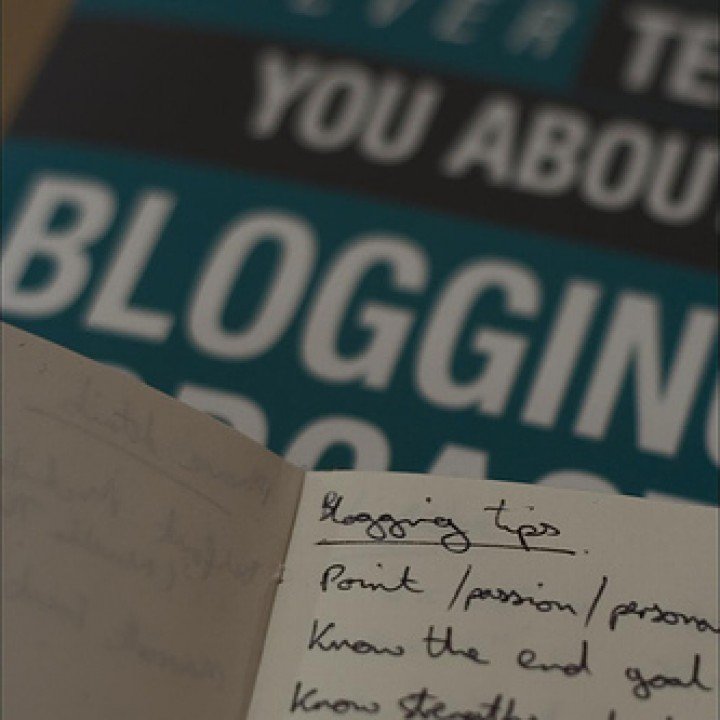 EVER TE
YOU ABOU
BLOGGING
Blogging tips
Point / passion / persona
Know the end goal
Know strengths